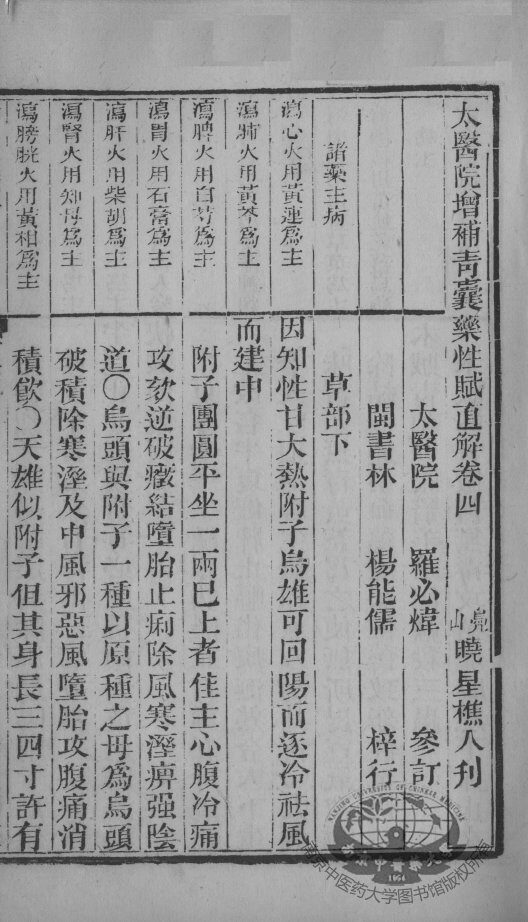 太醫院增補青囊藥性賦直解卷四
鳧山曉星樵人刋
太醫院 羅必煒 參訂
閩書林 楊能儒 梓行
諸藥主病
瀉心火用黃蓮為主
瀉肺火用黃芩為主
瀉脾火用白芍為主
瀉胃火用石膏為主
瀉肝火用柴胡為主
瀉腎火用知母為主
瀉膀胱火用黃柏為主
草部下
因知性甘大熱附子烏雄可回陽而逐冷祛風
而建中
附子團圓平坐一兩已上者佳主心腹冷痛
攻欬逆破癥結墮胎止痢除風寒溼痹强陰
道〇烏頭與附子一種以原種之母爲烏頭
破積除寒溼及中風邪惡風墮胎攻腹痛消
積飲〇天雄似附子但其身長三四寸許有
NANJING UNIVERSITY OF CHINESE MEDICINE
1954
南京中医药大学图书馆版权所有